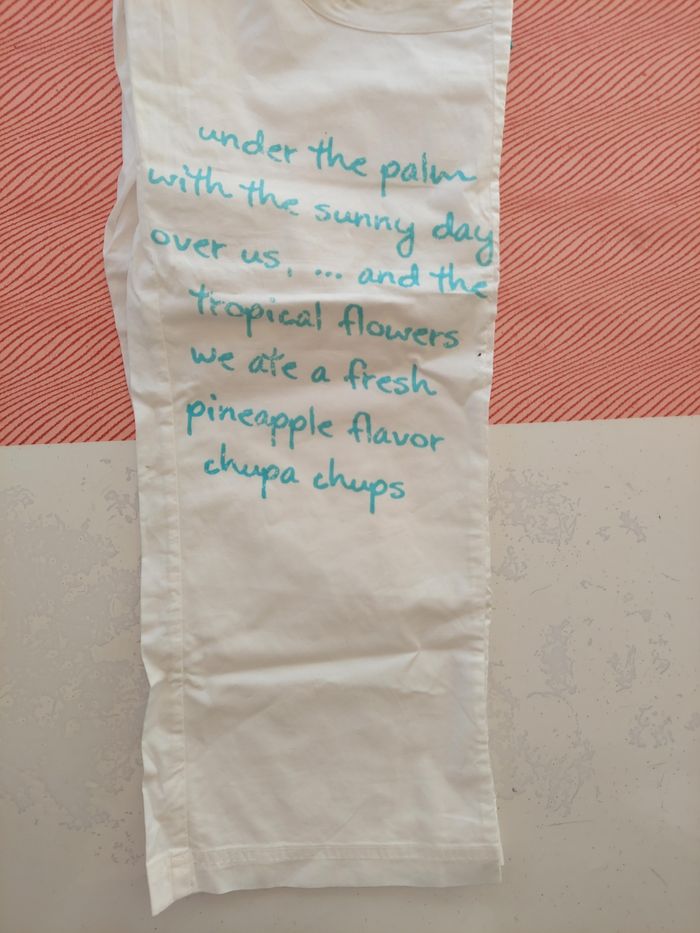 under the palm
with the sunny day
over us, ... and the
tropical flowers
we ate a fresh
pineapple flavor
chupa chups